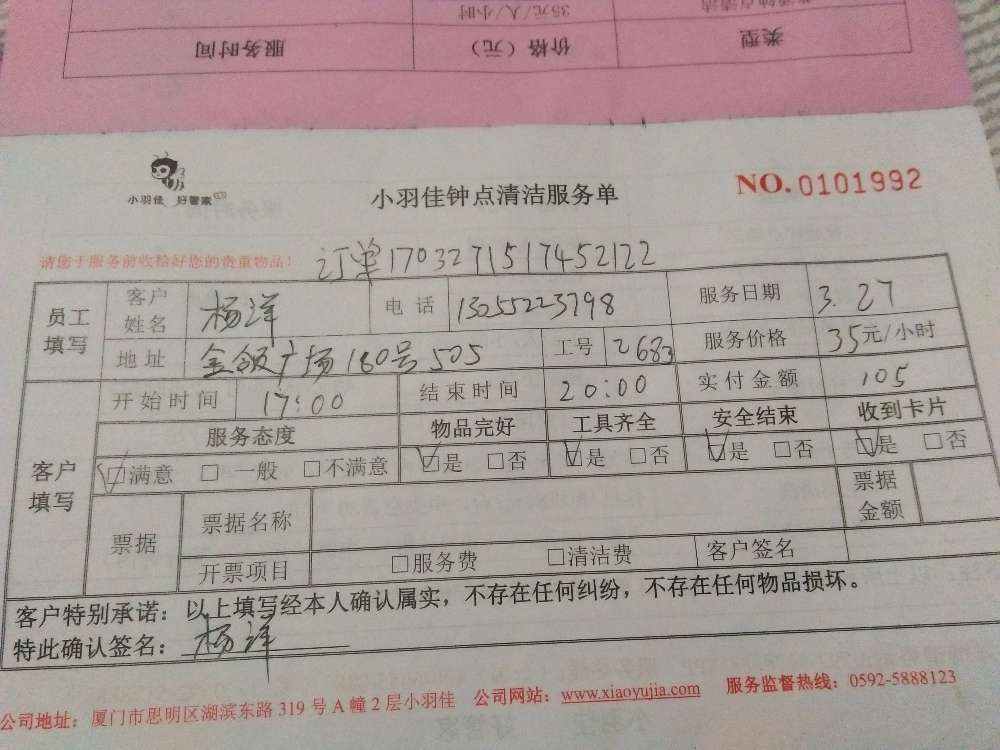 类型 价格（元） 服务时间
35元/人/小时
小羽佳 好管家
小羽佳钟点清洁服务单
NO. 0101992
请您于服务前收拾好您的贵重物品！
订单1703271517452122
员工填写 客户姓名 杨洋 电话 13055223798 服务日期 3.27
地址 金领广场180号505 工号 2683 服务价格 35元/小时
客户填写 开始时间 17:00 结束时间 20:00 实付金额 105
服务态度 物品完好 工具齐全 安全结束 收到卡片
☑满意 □一般 □不满意 ☑是 □否 ☑是 □否 ☑是 □否 ☑是 □否
票据 票据名称 票据金额
开票项目 □服务费 □清洁费 客户签名
客户特别承诺：以上填写经本人确认属实，不存在任何纠纷，不存在任何物品损坏。
特此确认签名：杨洋
公司地址：厦门市思明区湖滨东路319号A幢2层小羽佳 公司网站：www.xiaoyujia.com 服务监督热线：0592-5888123